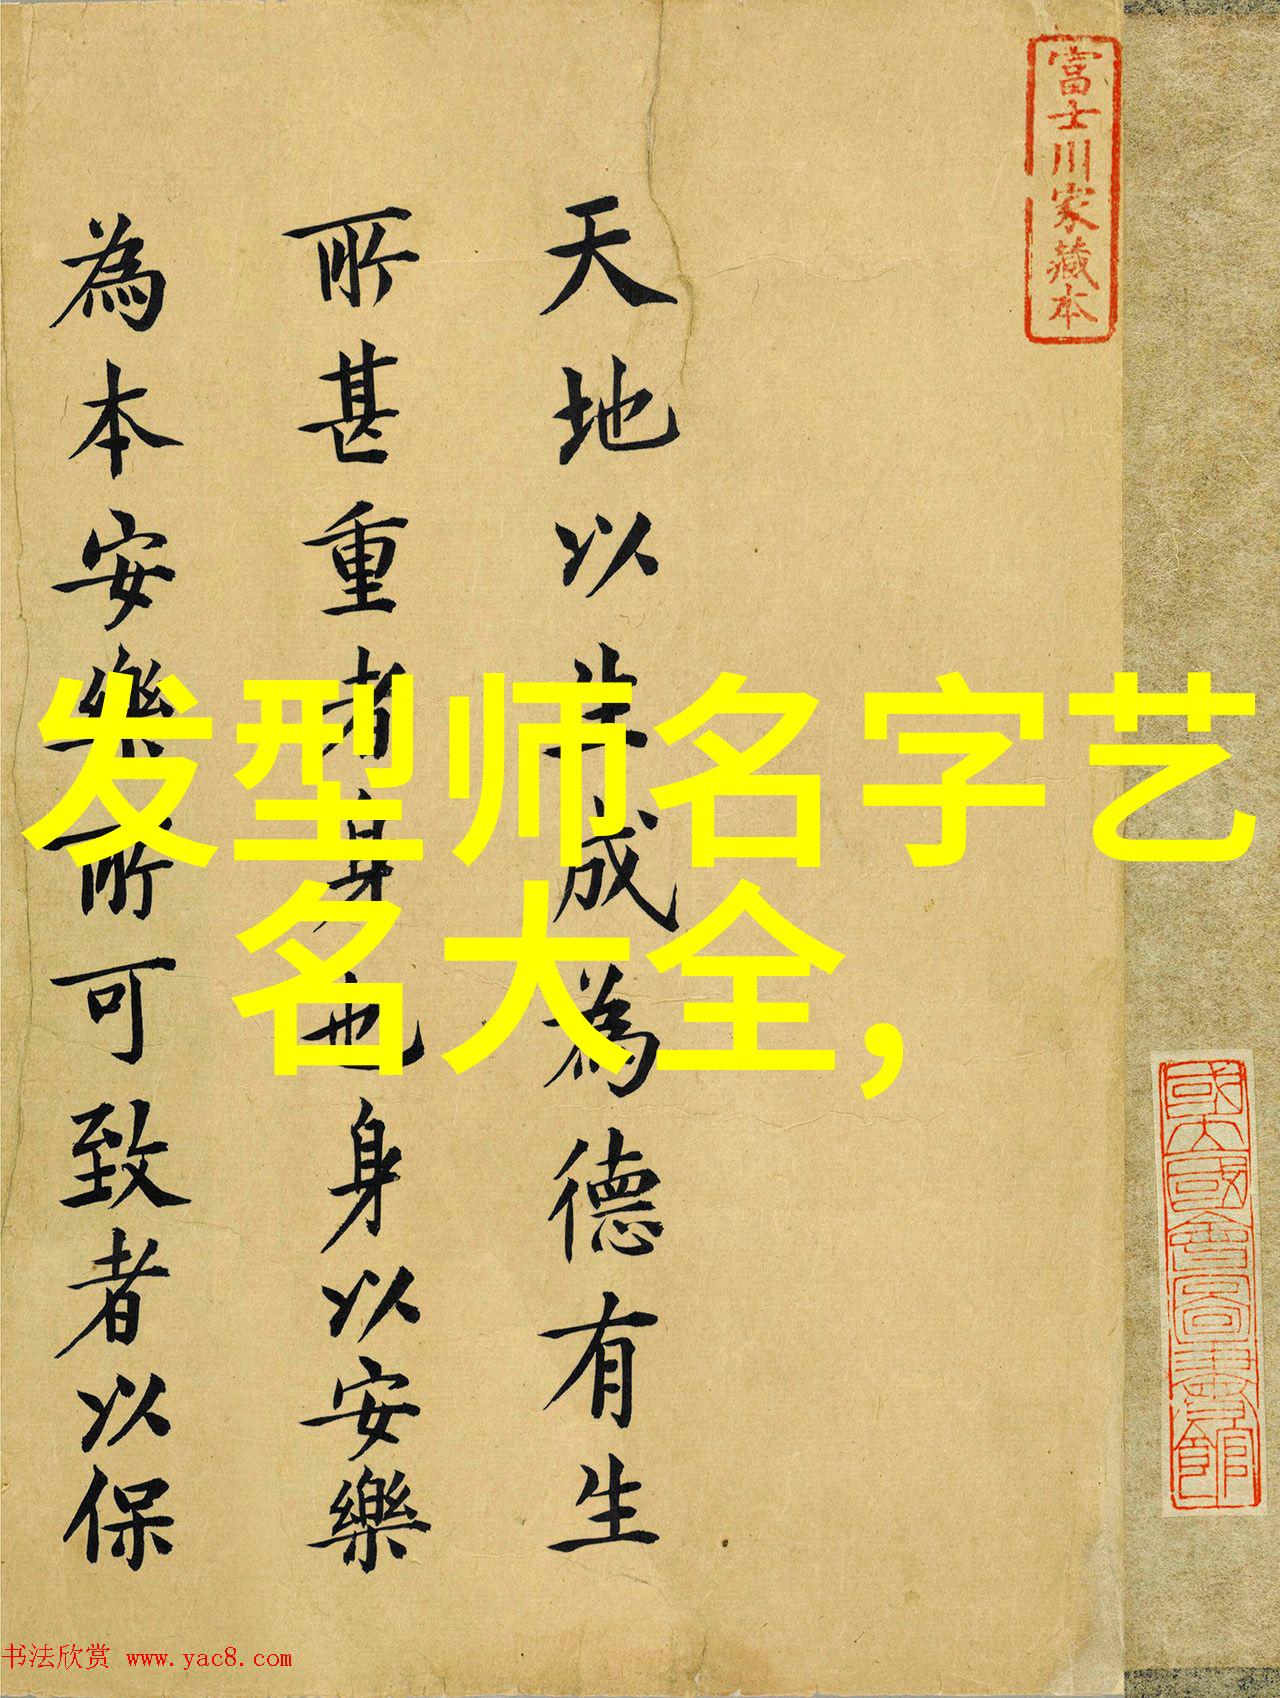 富士川家藏本
天地以生成為德有生
所甚重者身也身以安樂
為本安樂所可致者以保
发型师名字艺
名大全，
國立國會圖書館
书法欣赏 www.yac8.com